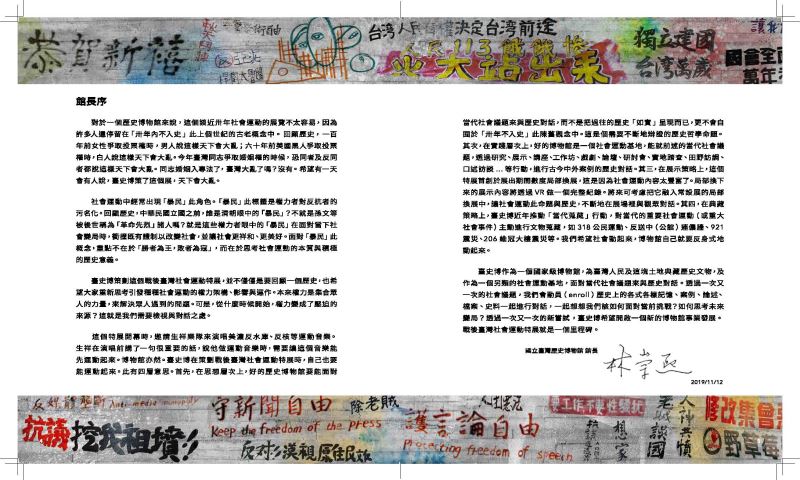 恭賀新禧
台湾人民有權決定台湾前途
人民113飢餓惨
火大站出來
獨立建國
台湾萬歲
國會全面
萬年
館長序
對於一個歷史博物館來說，這個貼近卅年社會運動的展覽不太容易，因為
許多人還停留在「卅年內不入史」此上個世紀的古老概念中。回顧歷史，一百
年前女性爭取投票權時，男人說這樣天下會大亂；六十年前美國黑人爭取投票
權時，白人說這樣天下會大亂。今年臺灣同志爭取婚姻權的時候，恐同者及反同
者都說這樣天下會大亂。同志婚姻入專法了，臺灣大亂了嗎？沒有。希望有一天
會有人說，臺史博策了這個展，天下會大亂。
社會運動中經常出現「暴民」此角色。「暴民」此標籤是權力者對反抗者的
污名化。回顧歷史，中華民國立國之前，誰是清朝眼中的「暴民」？不就是孫文等
被後世稱為「革命先烈」諸人嗎？就是這些權力者眼中的「暴民」在面對當下社
會變局時，衝撞既有體制以改變社會，並讓社會更祥和、更美好。面對「暴民」此
概念，重點不在於「勝者為王，敗者為寇」，而在於思考社會運動的本質與積極
的歷史意義。
臺史博策劃這個戰後臺灣社會運動特展，並不僅僅是要回顧一個歷史，也希
望大家重新思考引發種種社會運動的權力架構、影響與運作。本來權力是集合眾
人的力量，來解決眾人遇到的問題。可是，從什麼時候開始，權力變成了壓迫的
來源？這就是我們需要檢視與對話之處。
這個特展開幕時，邀請生祥樂隊來演唱美濃反水庫、反核等運動音樂。
生祥在演唱前講了一句很重要的話，說他做運動音樂時，需要讓這個音樂能
先運動起來。博物館亦然。臺史博在策劃戰後臺灣社會運動特展時，自己也要
能運動起來。此有四層意思。首先，在思想層次上，好的歷史博物館要能面對
當代社會議題來與歷史對話，而不是把過往的歷史「如實」呈現而已，更不會自
囿於「卅年不入史」此陳舊概念中。這是個需要不斷地辯證的歷史哲學命題。
其次，在實踐層次上，好的博物館是一個社會運動基地，能就前述的當代社會議
題，透過研究、展示、講座、工作坊、戲劇、論壇、研討會、實地踏查、田野訪調、
口述訪談…等行動，進行古今中外案例的歷史對話。其三，在展示策略上，這個
特展首創於展出期間數度局部換展，這是因為社會運動內容太豐富了。局部換下
來的展示內容將透過 VR 做一個完整紀錄。將來可考慮把它融入常設展的局部
換展中，讓社會運動此命題與歷史，不斷地在展場裡與觀眾對話。其四，在典藏
策略上，臺史博近年推動「當代蒐藏」行動，對當代的重要社會運動（或重大
社會事件）主動進行文物蒐藏，如 318 公民運動、反送中（公館）連儂牆、921
震災、206 維冠大樓震災等。我們希望社會動起來，博物館自己就要反身式地
動起來。
臺史博作為一個國家級博物館，為臺灣人民及這塊土地典藏歷史文物，及
作為一個另類的社會運動基地，面對當代社會議題來與歷史對話。透過一次又
一次的社會議題，我們會動員（enroll）歷史上的各式各樣記憶、案例、論述、
檔案、史料一起進行對話，一起想想我們該如何面對當前挑戰？如何思考未來
變局？透過一次又一次的新嘗試，臺史博希望開啟一個新的博物館事業發展。
戰後臺灣社會運動特展就是一個里程碑。
國立臺灣歷史博物館 館長
林崇熙
2019/11/12
反媒體壟斷 Anti-media monopoly
抗議挖我祖墳!!
守新聞自由
Keep the freedom of the press
反對漠視原住民
除老賊
護言論自由
Protecting freedom of speech
女工作不要性騷擾
想家
誤國
人神共憤
修改集會
野草莓